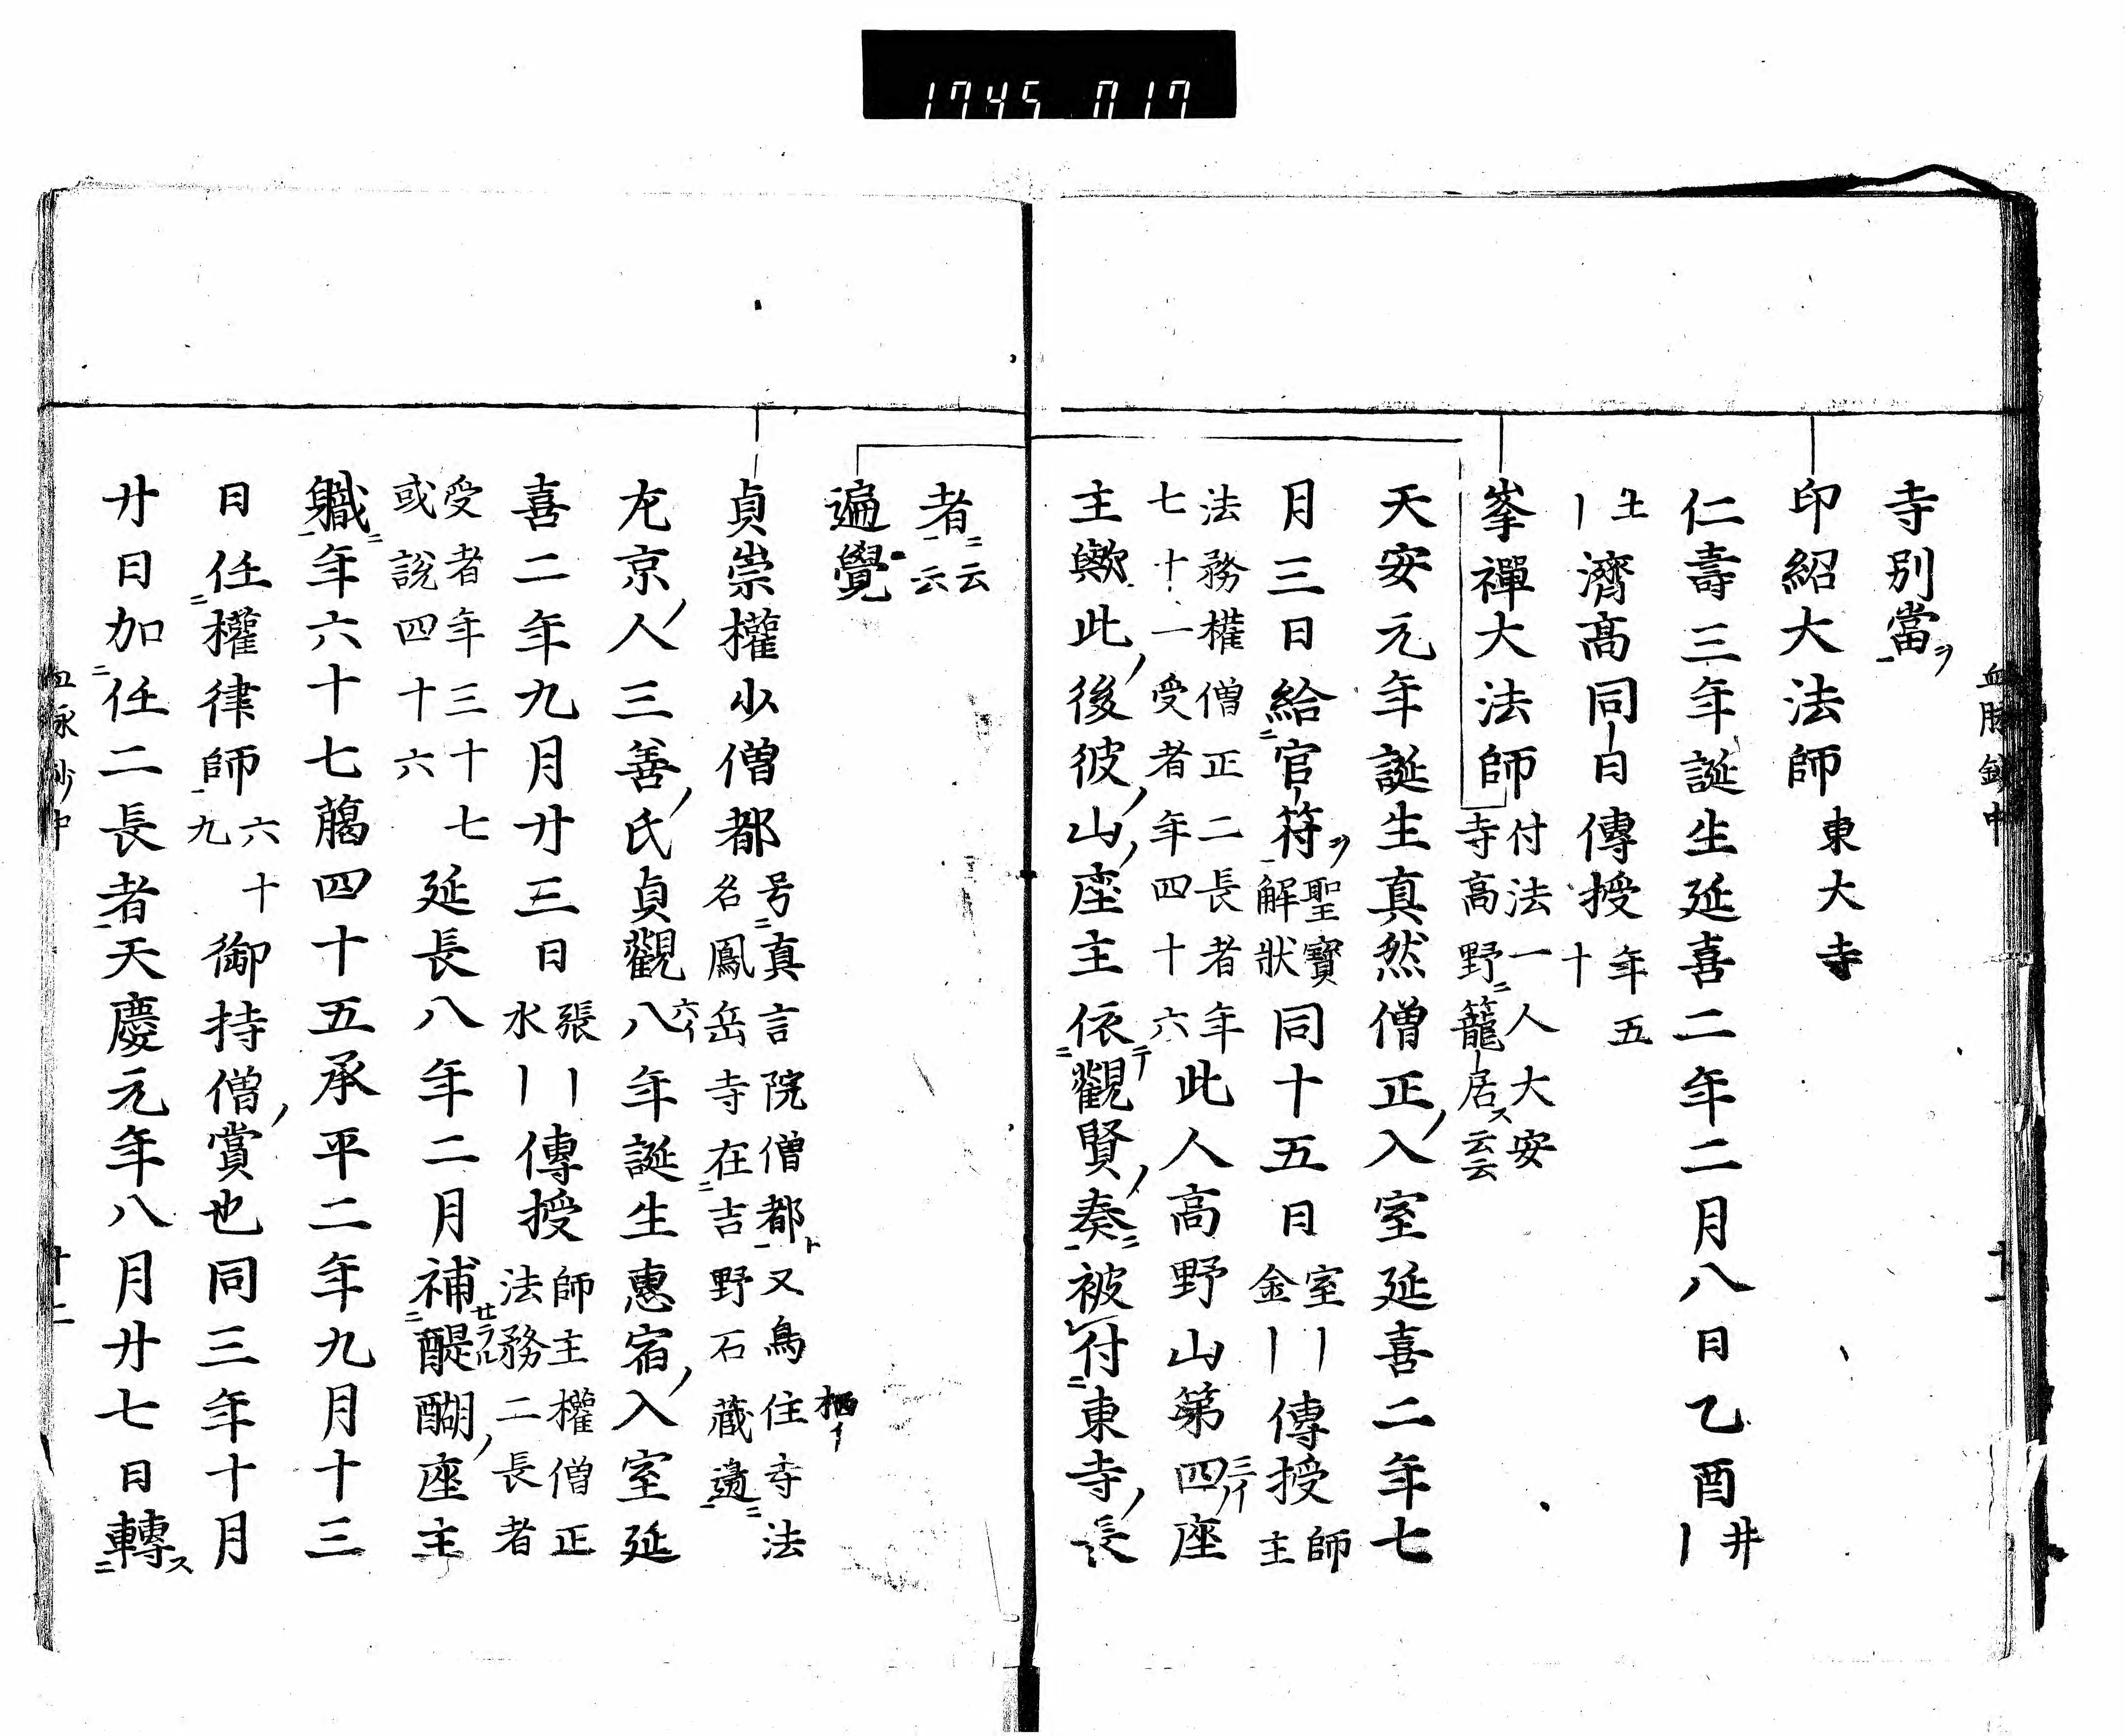 1745 017
寺別當ヲ
印紹大法師東大寺
仁壽三年誕生延喜二年二月八日乙酉井｜
土｜濟高同日傳授年五十
峯禪大法師付法一人大安寺高野ニ籠居ス云云
天安元年誕生真然僧正入室延喜二年七
月三日給官符ヲ聖寶解狀同十五日室｜金｜傳授師主
法務權僧正二長者年七十一受者年四十六此人高野山第四三イ座
主歟此後彼山座主依テ觀賢奏ニ被付東寺長
者ニ云云
遍覺
貞崇權少僧都号真言院僧都ト又鳥栖イ住寺法名鳳岳寺在吉野石藏邊ニ
左京人三善氏貞觀八六イ年誕生惠宿入室延
喜二年九月廿三日張｜水｜傳授師主權僧正法務二長者
受者年三十七或說四十六延長八年二月補セラル醍醐座主
職ニ年六十七﨟四十五承平二年九月十三
日任權律師六十九御持僧賞也同三年十月
廿日加任二長者天慶元年八月廿七日轉ス